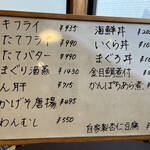 キフライ ¥935
たてフライ ¥990
たてバター ¥990
まぐり酒蒸 ¥1430
ん肝 ¥715
かげそ唐揚 ¥495
わんむし ¥550
海鮮丼
いくら丼
まぐろ丼
金目鯛煮付
かんぱちあら煮
自家製杏仁豆腐